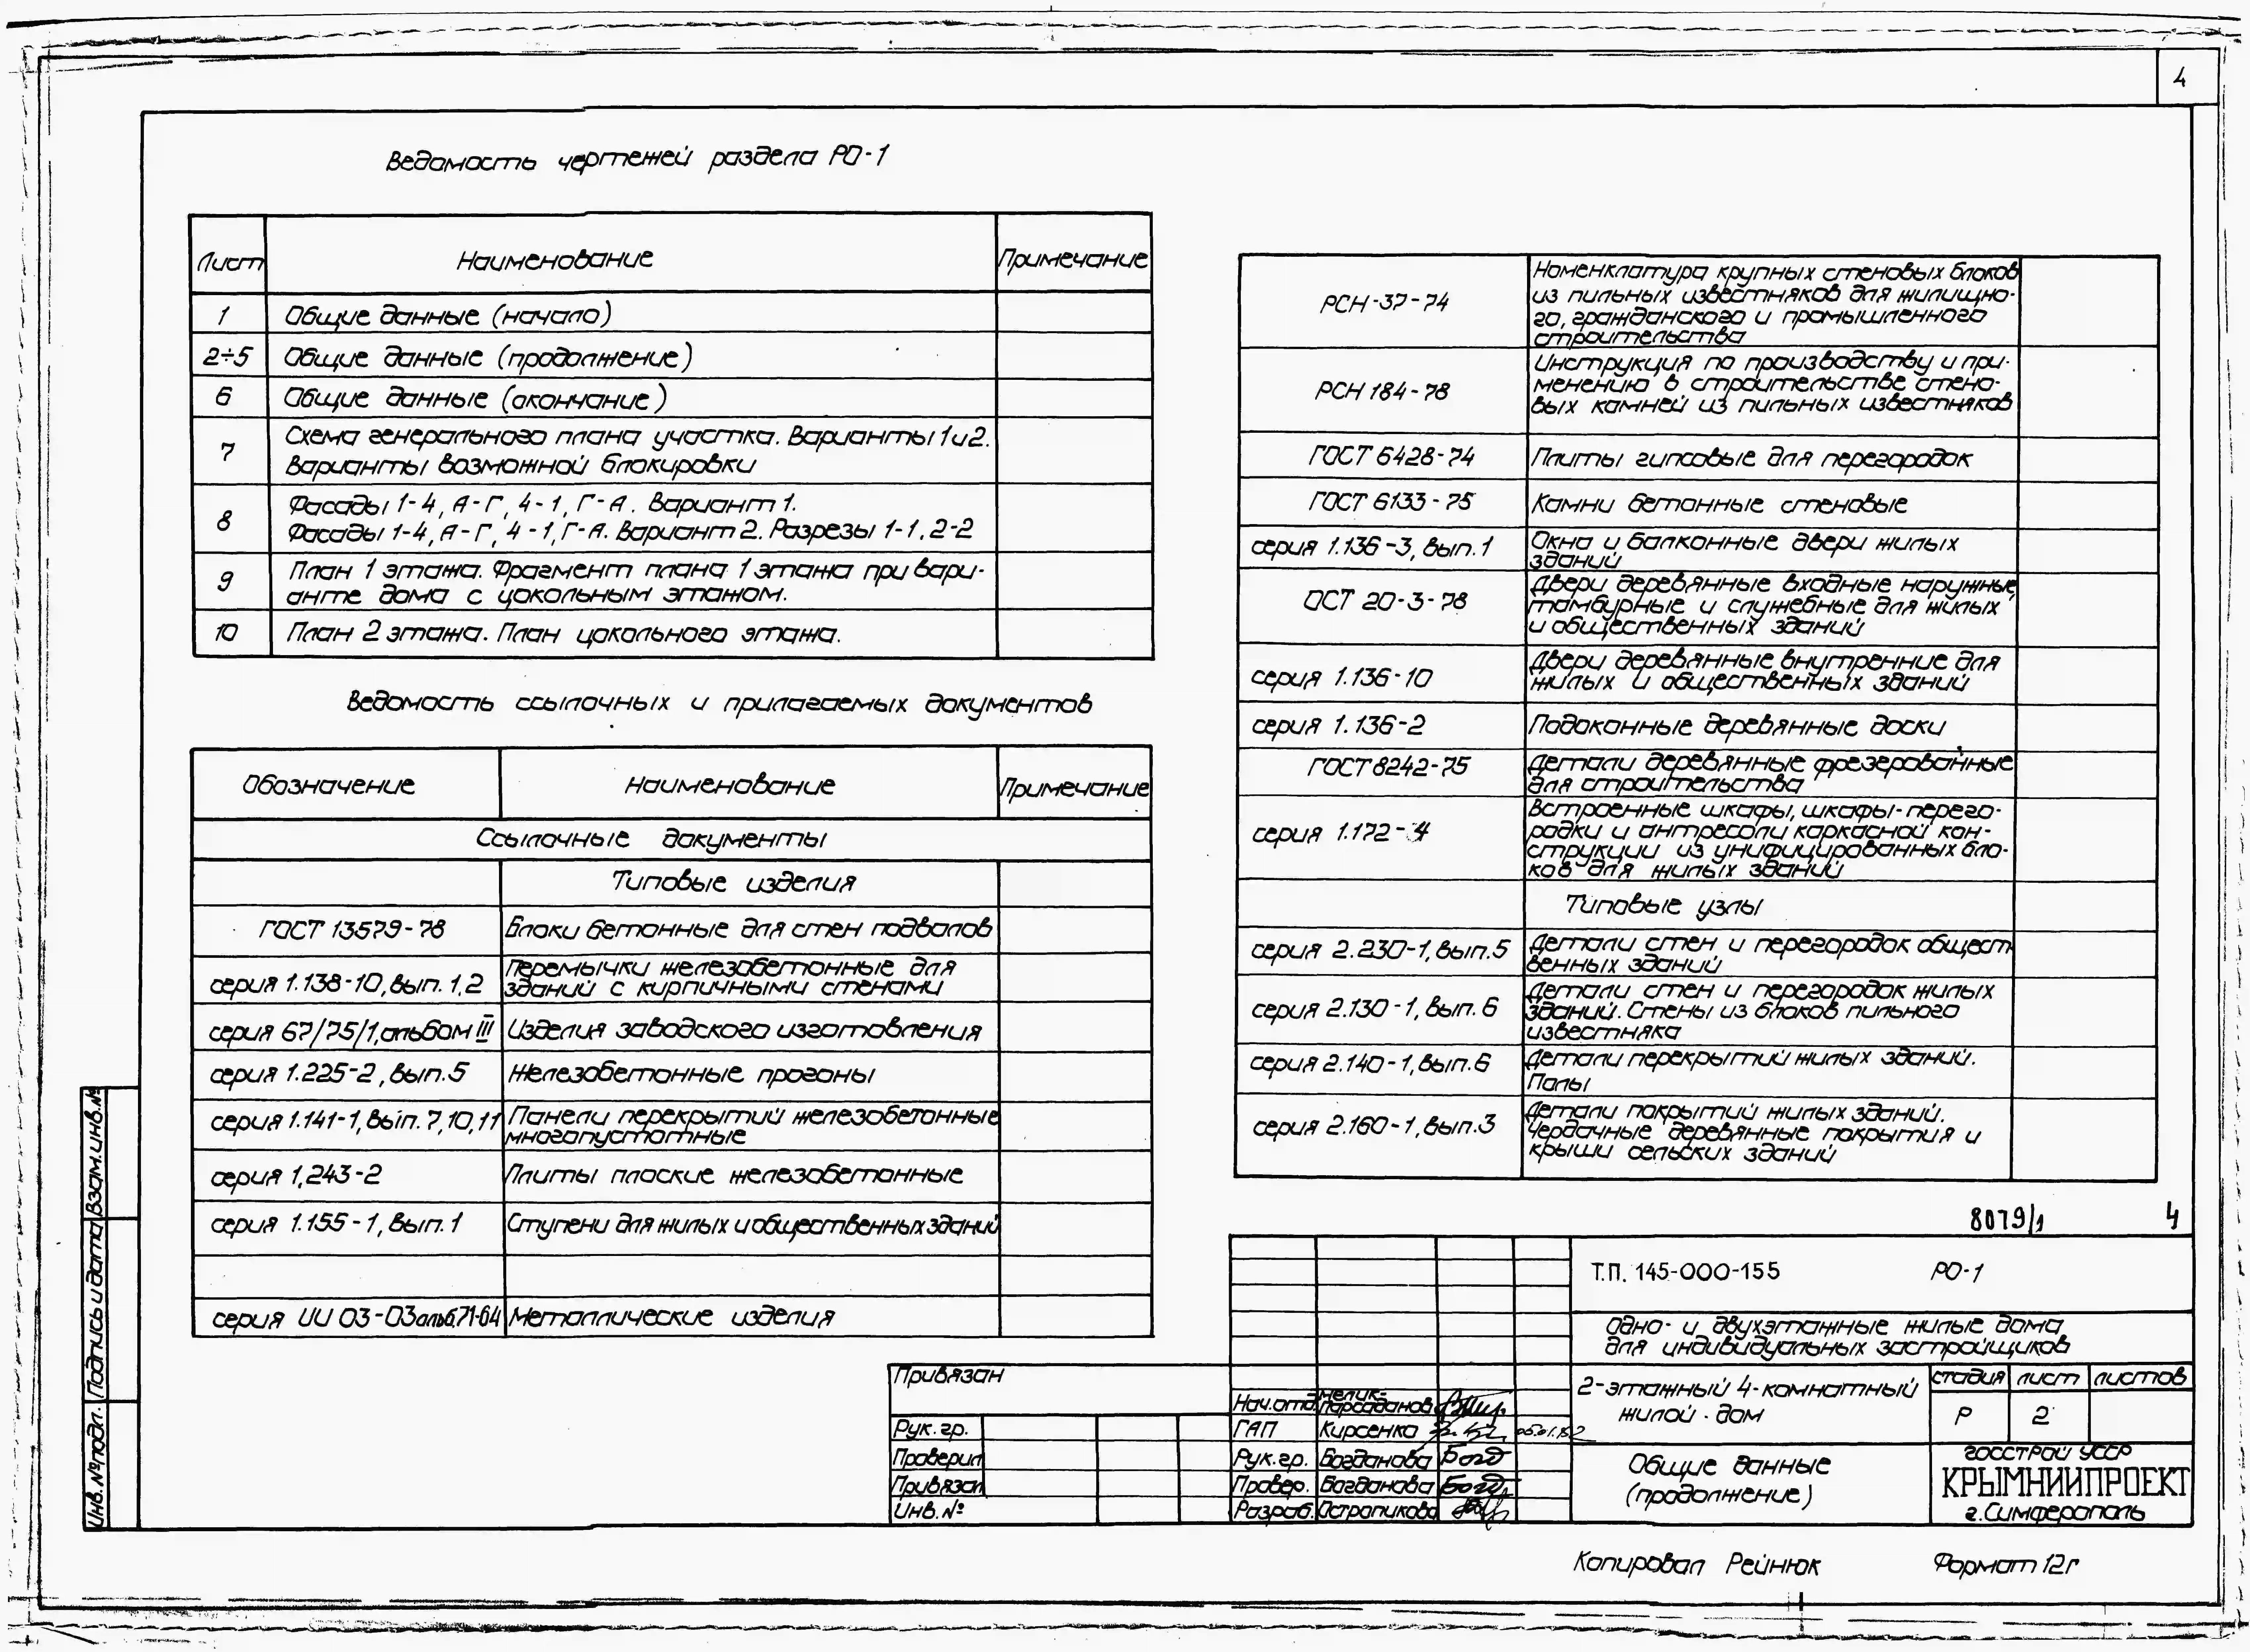 4
Ведомость чертежей раздела РО-1
Лист Наименование Примечание
1 Общие данные (начало)
2÷5 Общие данные (продолжение)
6 Общие данные (окончание)
7 Схема генерального плана участка. Варианты 1 и 2.
Варианты возможной блокировки
8 Фасады 1-4, А-Г, 4-1, Г-А. Вариант 1.
Фасады 1-4, А-Г, 4-1, Г-А. Вариант 2. Разрезы 1-1, 2-2
9 План 1 этажа. Фрагмент плана 1 этажа при вари-
анте дома с цокольным этажом.
10 План 2 этажа. План цокольного этажа.
Ведомость ссылочных и прилагаемых документов
Обозначение Наименование Примечание
Ссылочные документы
Типовые изделия
ГОСТ 13579-78 Блоки бетонные для стен подвалов
серия 1.138-10, вып. 1,2 Перемычки железобетонные для
зданий с кирпичными стенами
серия 67/75/1, альбом III Изделия заводского изготовления
серия 1.225-2, вып.5 Железобетонные прогоны
серия 1.141-1, вып. 7,10,11 Панели перекрытий железобетонные
многопустотные
серия 1,243-2 Плиты плоские железобетонные
серия 1.155-1, вып.1 Ступени для жилых и общественных зданий
серия ИИ 03-03 альб.71-64 Металлические изделия
РСН-37-74 Номенклатура крупных стеновых блоков
из пильных известняков для жилищно-
го, гражданского и промышленного
строительства
РСН 184-78 Инструкция по производству и при-
менению в строительстве стено-
вых камней из пильных известняков
ГОСТ 6428-74 Плиты гипсовые для перегородок
ГОСТ 6133-75 Камни бетонные стеновые
серия 1.136-3, вып.1 Окна и балконные двери жилых
зданий
ОСТ 20-3-78 Двери деревянные входные наружные,
тамбурные и служебные для жилых
и общественных зданий
серия 1.136-10 Двери деревянные внутренние для
жилых и общественных зданий
серия 1.136-2 Подоконные деревянные доски
ГОСТ 8242-75 Детали деревянные фрезерованные
для строительства
серия 1.172-4 Встроенные шкафы, шкафы-перего-
родки и антресоли каркасной кон-
струкции из унифицированных бло-
ков для жилых зданий
Типовые узлы
серия 2.230-1, вып.5 Детали стен и перегородок общест
венных зданий
серия 2.130-1, вып. 6 Детали стен и перегородок жилых
зданий. Стены из блоков пильного
известняка
серия 2.140-1, вып.6 Детали перекрытий жилых зданий.
Полы
серия 2.160-1, вып.3 Детали покрытий жилых зданий.
Чердачные деревянные покрытия и
крыши сельских зданий
8079/1 4
Т.П. 145-000-155 РО-1
Одно- и двухэтажные жилые дома
для индивидуальных застройщиков
2-этажный 4-комнатный
жилой дом
стадия лист листов
Р 2
Общие данные
(продолжение)
ГОССТРОЙ УССР
КРЫМНИИПРОЕКТ
г.Симферополь
Привязан
Рук.гр.
Проверил
Привязал
Инв.№
Нач.отд. Мелик-
Парсаданов
ГАП Кирсенко
Рук.гр. Богданова Богд
Провер. Богданова Богд
Разраб. Остропикова
Взам.инв.№
Подпись и дата
Инв.№подл.
Копировал Рейнюк Формат 12г